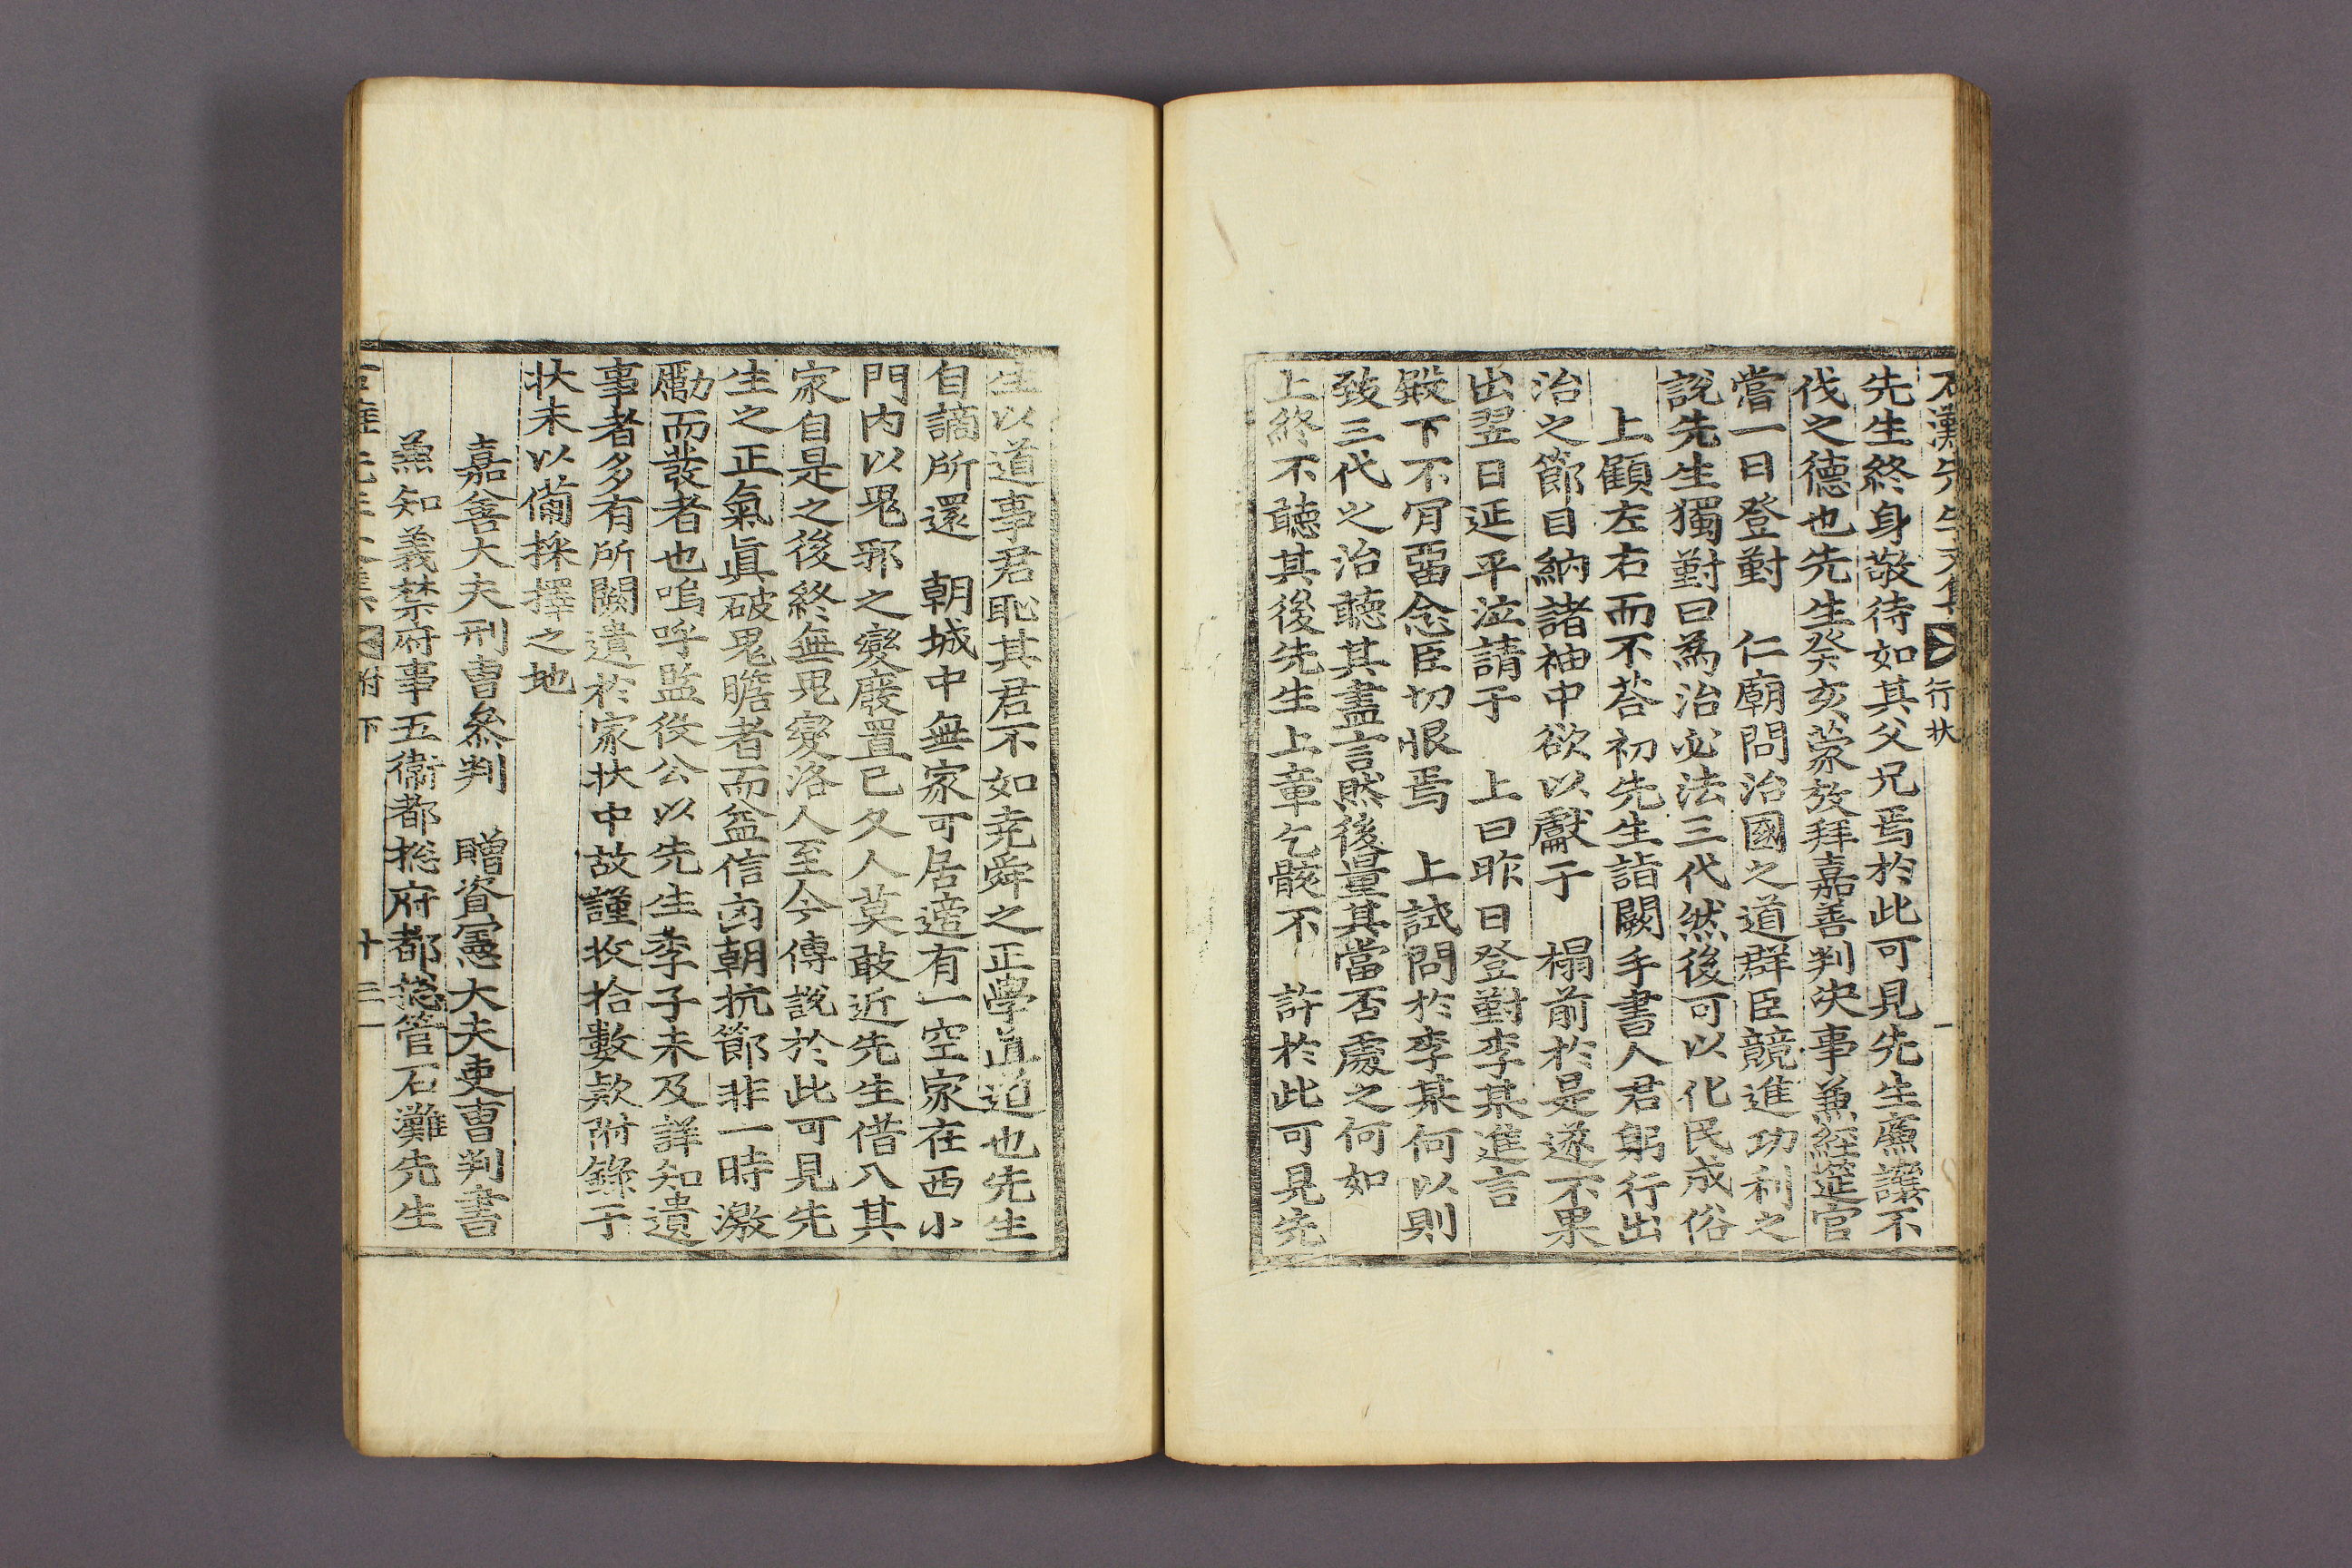 石灘先生文集 行狀
先生終身敬待如其父兄焉於此可見先生廉讓不
伐之德也先生癸亥蒙發拜嘉善判决事兼經筵官
嘗一日登對 仁廟問治國之道群臣競進功利之
說先生獨對曰爲治必法三代然後可以化民成俗
上顧左右而不荅初先生詣闕手書人君躬行出
治之節目納諸袖中欲以獻于 榻前於是遂不果
出翌日延平泣請于 上曰昨日登對李某進言
殿下不肎畱念臣切恨焉 上試問於李某何以則
致三代之治聽其盡言然後量其當否處之何如
上終不聽其後先生上章乞骸不 許於此可見先
生以道事君恥其君不如堯舜之正學直道也先生
自謫所還 朝城中無家可居適有一空家在西小
門内以鬼邪之變廢置已久人莫敢近先生借入其
家自是之後終無鬼變洛人至今傳說於此可見先
生之正氣眞破鬼膽者而益信囱朝抗節非一時激
勵而發者也嗚呼監役公以先生季子未及詳知遺
事者多有所闕遺於家狀中故謹收拾數款附錄于
狀末以備採擇之地
嘉善大夫刑曹叅判 贈資憲大夫吏曹判書
兼知義禁府事五衛都摠府都摠管石灘先生
附 下 十二